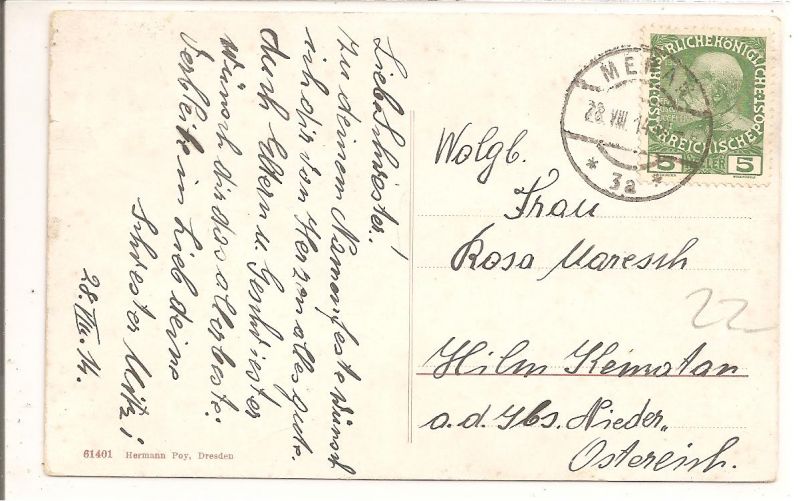 Liebe Schwester!
zu deinem Namensfeste wünsch
ich dir von Herzen alles gute.
auch Eltern u. Geschwister
wünsch dir das allerbeste:
Verbleibe in Lieb deine
Schwester Mitzi
28. VIII. 14.
61401 Hermann Poy, Dresden
KAISERLICHEKÖNIGLICHE
ÖSTERREICHISCHE POST
5 HELLER 5
MERAN
28. VIII. 14
* 3a *
Wolgb.
Frau
Rosa Maresch
Hilm Kematan
a. d. Ybs. Nieder„
Ostereich.
22